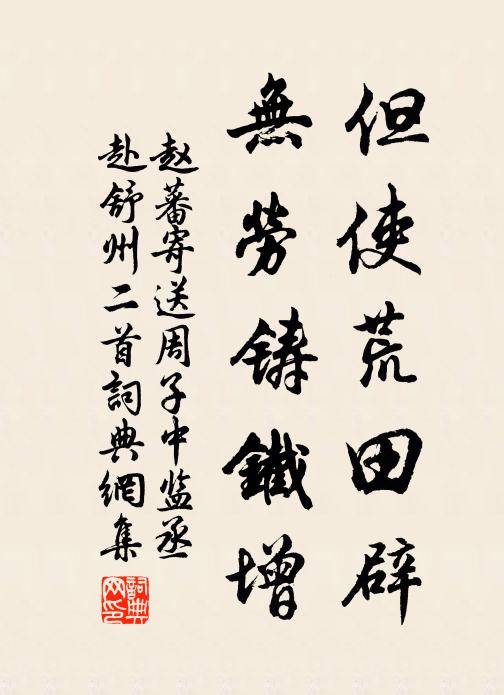 但使荒田辟
無勞鑄鐵增
赵蕃寄送周子中监丞
赴舒州二首詞典網集
詞典
网印